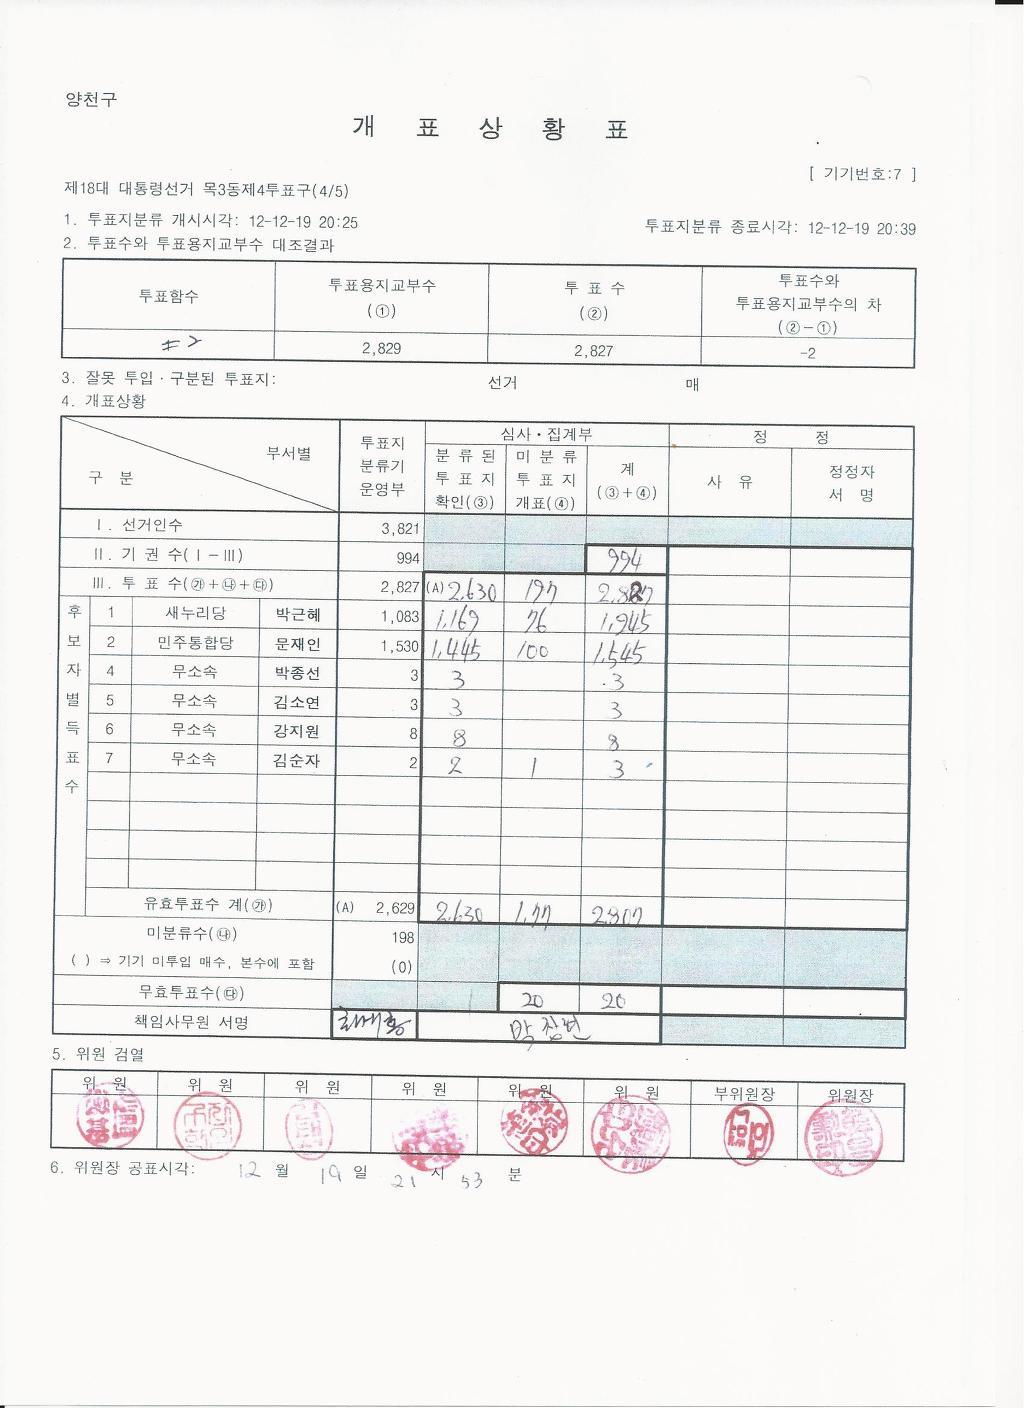 양천구
개 표 상 황 표
[ 기기번호:7 ]
제18대 대통령선거 목3동제4투표구(4/5)
1. 투표지분류 개시시각: 12-12-19 20:25 투표지분류 종료시각: 12-12-19 20:39
2. 투표수와 투표용지교부수 대조결과
투표함수 투표용지교부수 (①) 투 표 수 (②) 투표수와 투표용지교부수의 차 (②-①)
2,829 2,827 -2
3. 잘못 투입·구분된 투표지: 선거 매
4. 개표상황
구 분 부서별 투표지 분류기 운영부 심사·집계부 정 정
분 류 된 투 표 지 확인(③) 미 분 류 투 표 지 개표(④) 계 (③+④) 사 유 정정자 서 명
Ⅰ. 선거인수 3,821
Ⅱ. 기 권 수(Ⅰ-Ⅲ) 994 994
Ⅲ. 투 표 수(㉮+㉯+㉰) 2,827 (A) 2,630 197 2,827
후보자별득표수
1 새누리당 박근혜 1,083 1,169 76
2 민주통합당 문재인 1,530 1,445 100 1,545
4 무소속 박종선 3 3 3
5 무소속 김소연 3 3 3
6 무소속 강지원 8 8 8
7 무소속 김순자 2 2 1 3
유효투표수 계(㉮) (A) 2,629 2,630 2,807
미분류수(㉯) 198
( ) ⇒ 기기 미투입 매수, 본수에 포함 (0)
무효투표수(㉰) 20 20
책임사무원 서명
5. 위원 검열
위 원 위 원 위 원 위 원 위 원 위 원 부위원장 위원장
6. 위원장 공표시각: 12 월 19 일 21 시 53 분